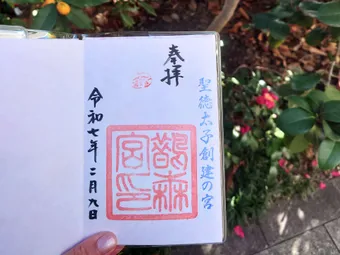 聖徳太子創建の宮
奉拝
鵲森
宮印
令和七年二月九日